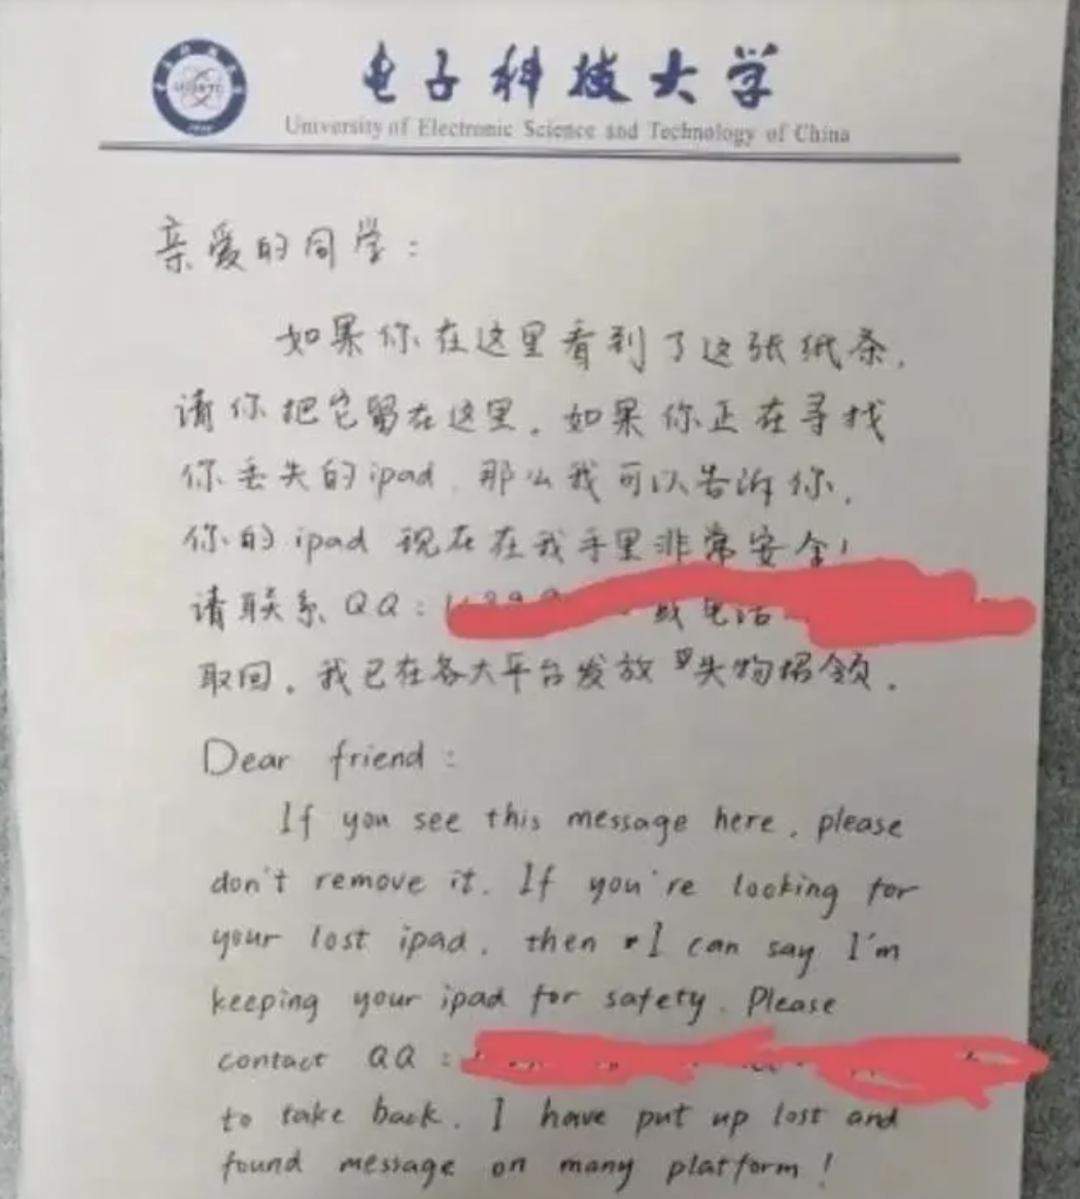 电子科技大学
University of Electronic Science and Technology of China
亲爱的同学:
如果你在这里看到了这张纸条,
请你把它留在这里。如果你正在寻找
你丢失的ipad,那么我可以告诉你,
你的ipad现在在我手里非常安全!
请联系QQ: 或电话
取回。我已在各大平台发放失物招领.
Dear friend:
If you see this message here, please
don't remove it. If you're looking for
your lost ipad, then I can say I'm
keeping your ipad for safety. Please
contact QQ:
to take back. I have put up lost and
found message on many platform!